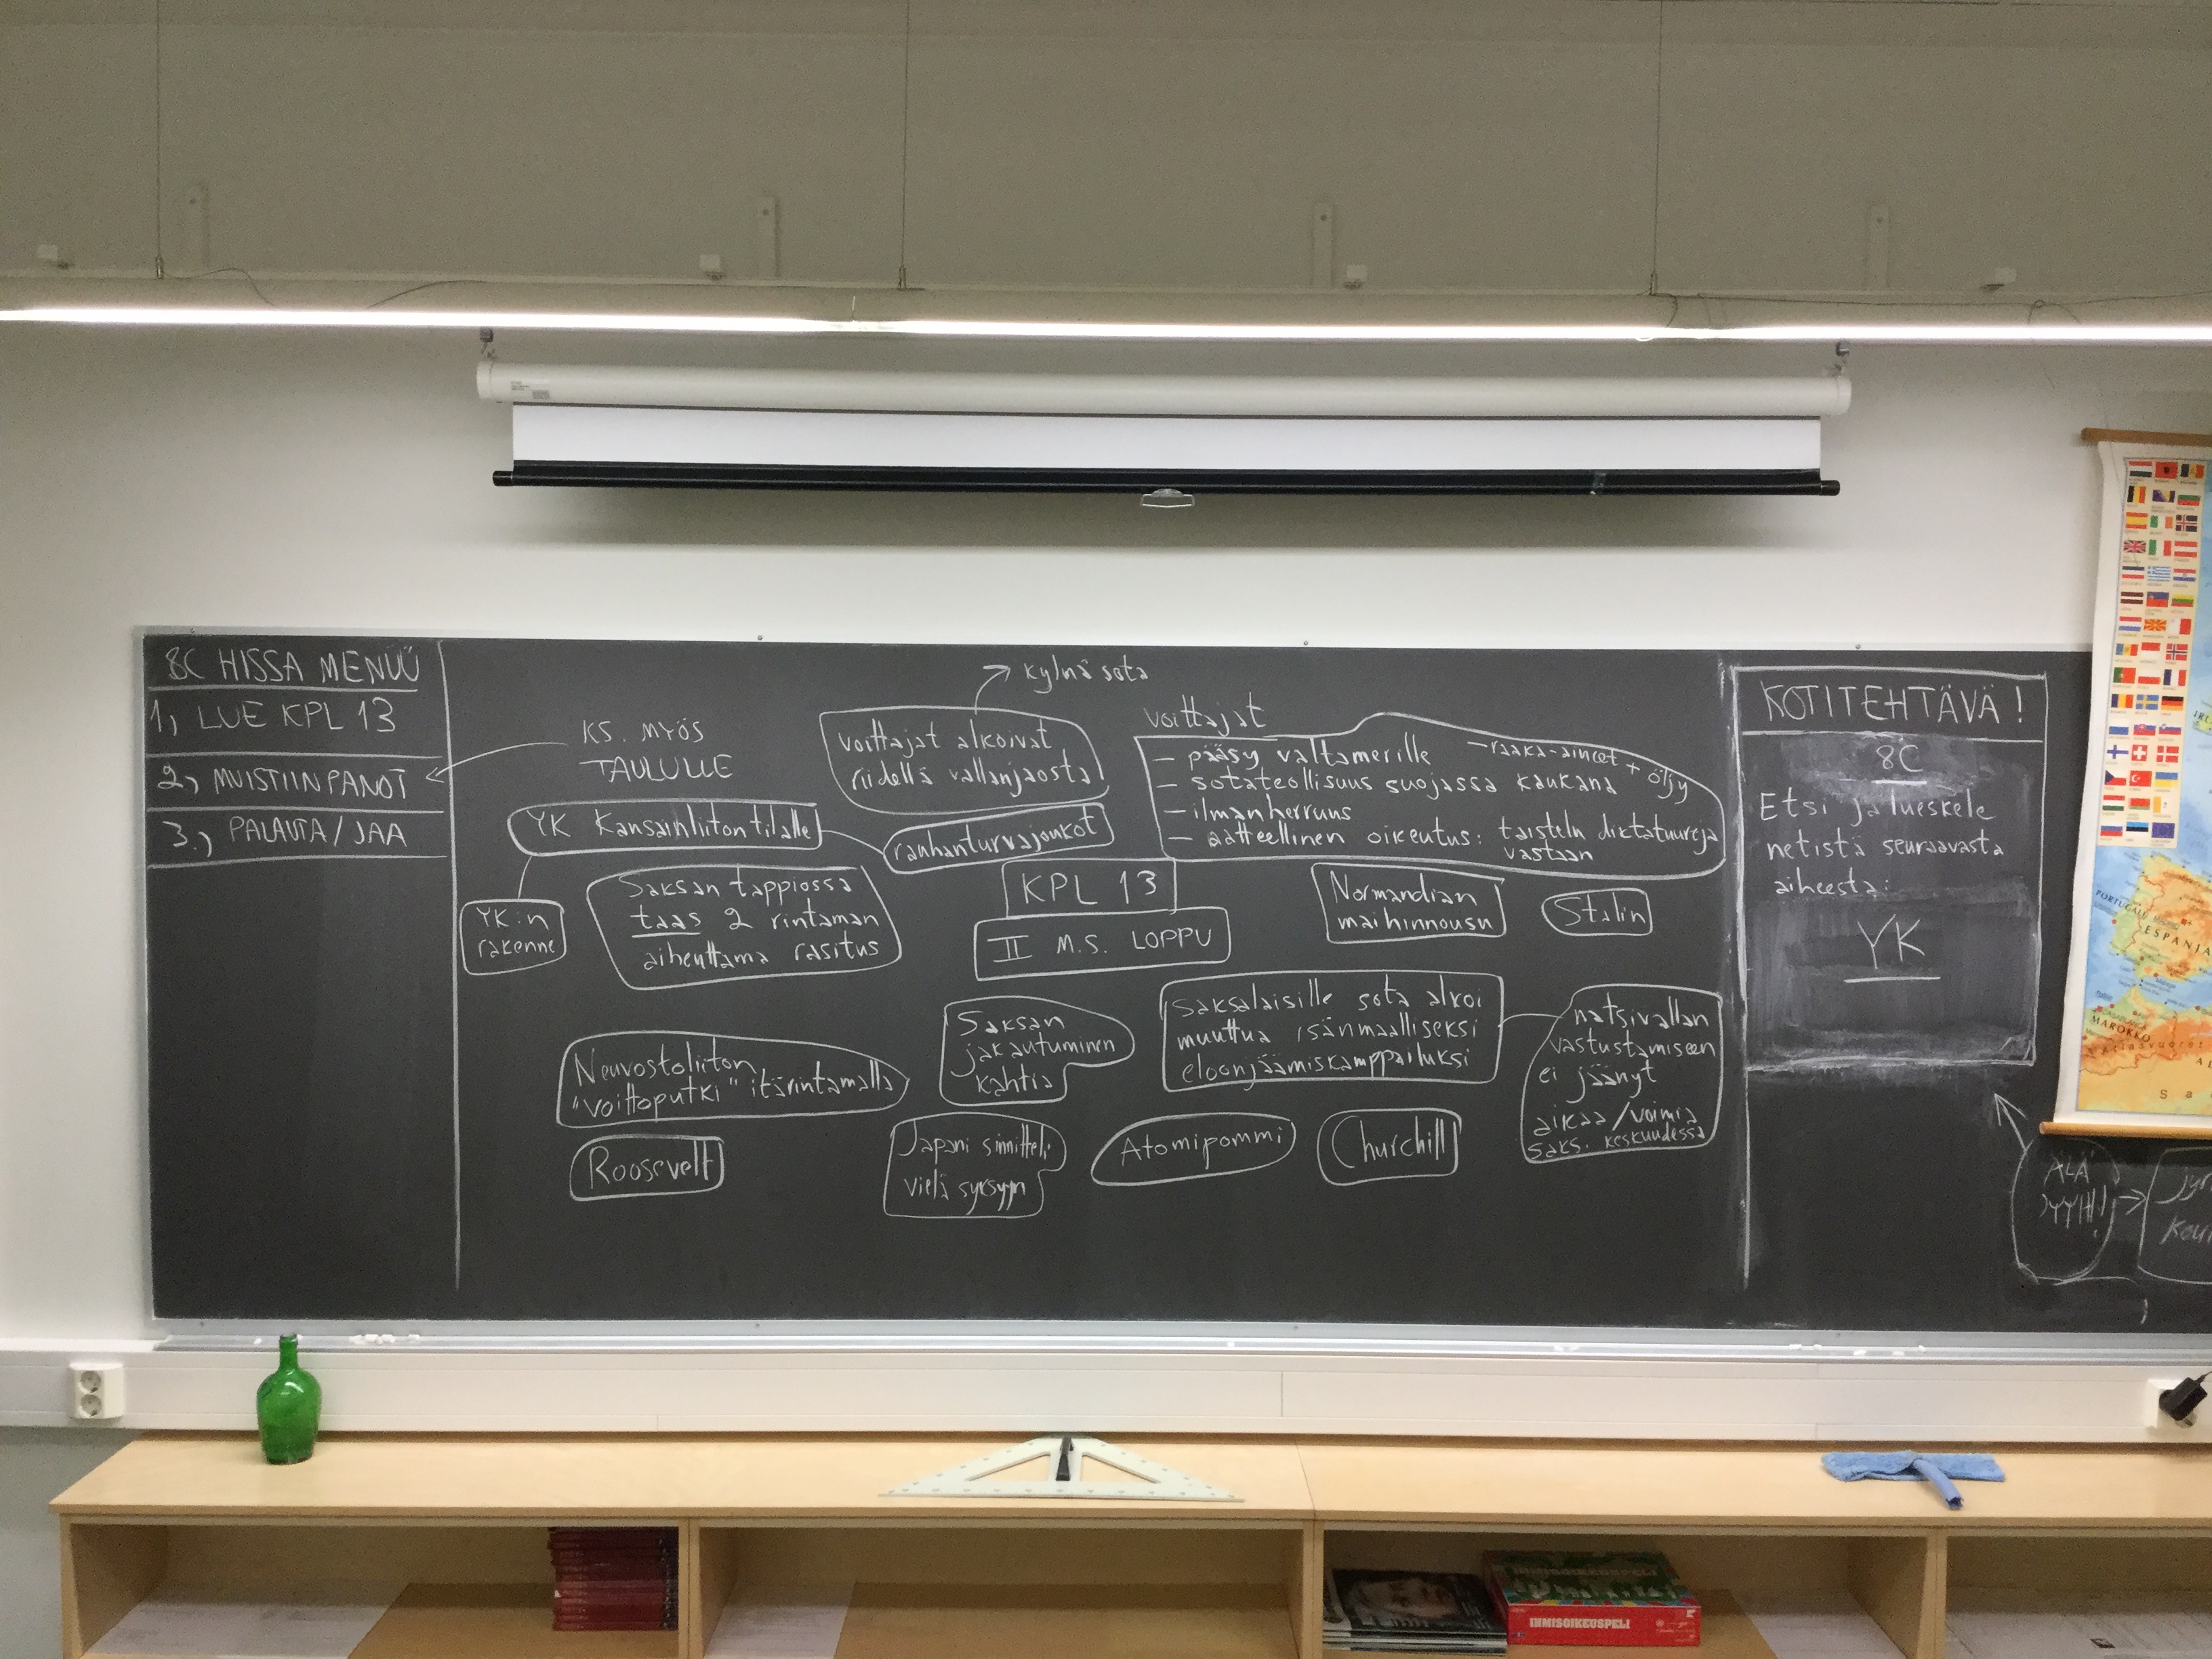 8C HISSA MENÜÜ
1, LUE KPL 13
2, MUISTIINPANOT
3., PALAUTA / JAA
KS. MYÖS
TAULULLE
kylmä sota
voittajat alkoivat
riidellä vallanjaosta
voittajat
– pääsy valtamerille – raaka-aineet + öljy
– sotateollisuus suojassa kaukana
– ilmanherruus
– aatteellinen oikeutus: taistelu diktatuureja
vastaan
YK Kansainliiton tilalle
rauhanturvajoukot
YK:n
rakenne
Saksan tappiossa
taas 2 rintaman
aiheuttama rasitus
KPL 13
II M.S. LOPPU
Normandian
maihinnousu
Stalin
Neuvostoliiton
"voittoputki" itärintamalla
Saksan
jakautuminen
kahtia
Saksalaisille sota alkoi
muuttua isänmaalliseksi
eloonjäämiskamppailuksi
natsivallan
vastustamiseen
ei jäänyt
aikaa/voimia
saks. keskuudessa
Roosevelt
Japani sinnitteli
vielä syksyyn
Atomipommi
Churchill
KOTITEHTÄVÄ!
8C
Etsi ja lueskele
netistä seuraavasta
aiheesta:
YK
ÄLÄ
PORTUGALI
ESPANJA
MAROKKO
IHMISOIKEUSPELI
IHMISOIKEUSPELI